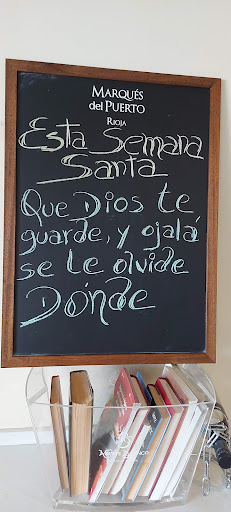 MARQUÉS
del PUERTO
RIOJA
Esta Semana
Santa
Que Dios te
guarde, y ojalá
se le olvide
Dónde